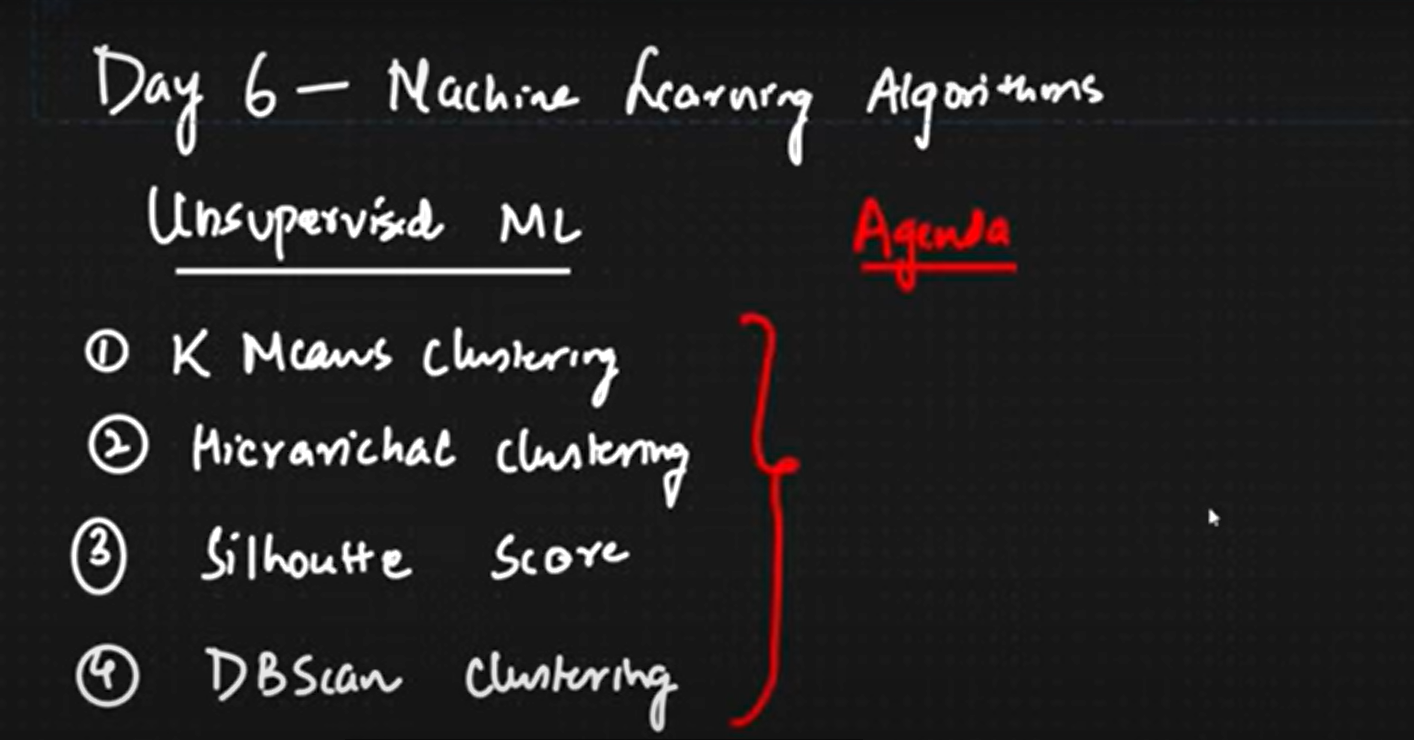 Day 6 - Machine Learning Algorithms
Unsupervised ML
Agenda
① K Means Clustering
② Hierarichal clustering
③ Silhoutte Score
④ DBScan Clustering